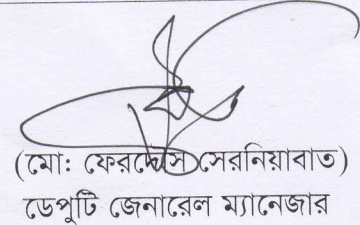 (মো: ফেরদৌস সেরনিয়াবাত)
ডেপুটি জেনারেল ম্যানেজার